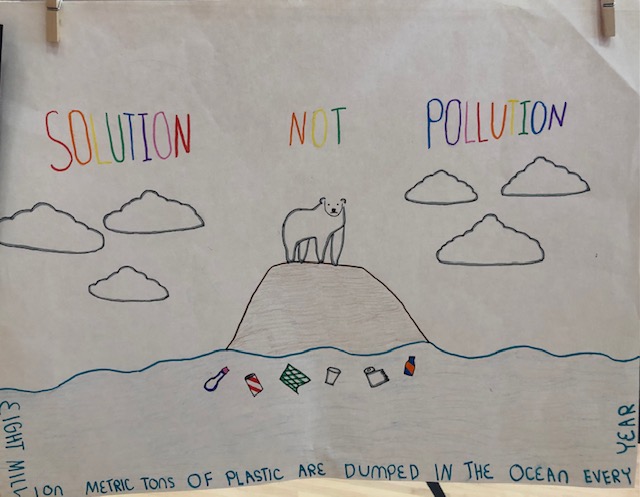 SOLUTION NOT POLLUTION
EIGHT MILLION METRIC TONS OF PLASTIC ARE DUMPED IN THE OCEAN EVERY YEAR